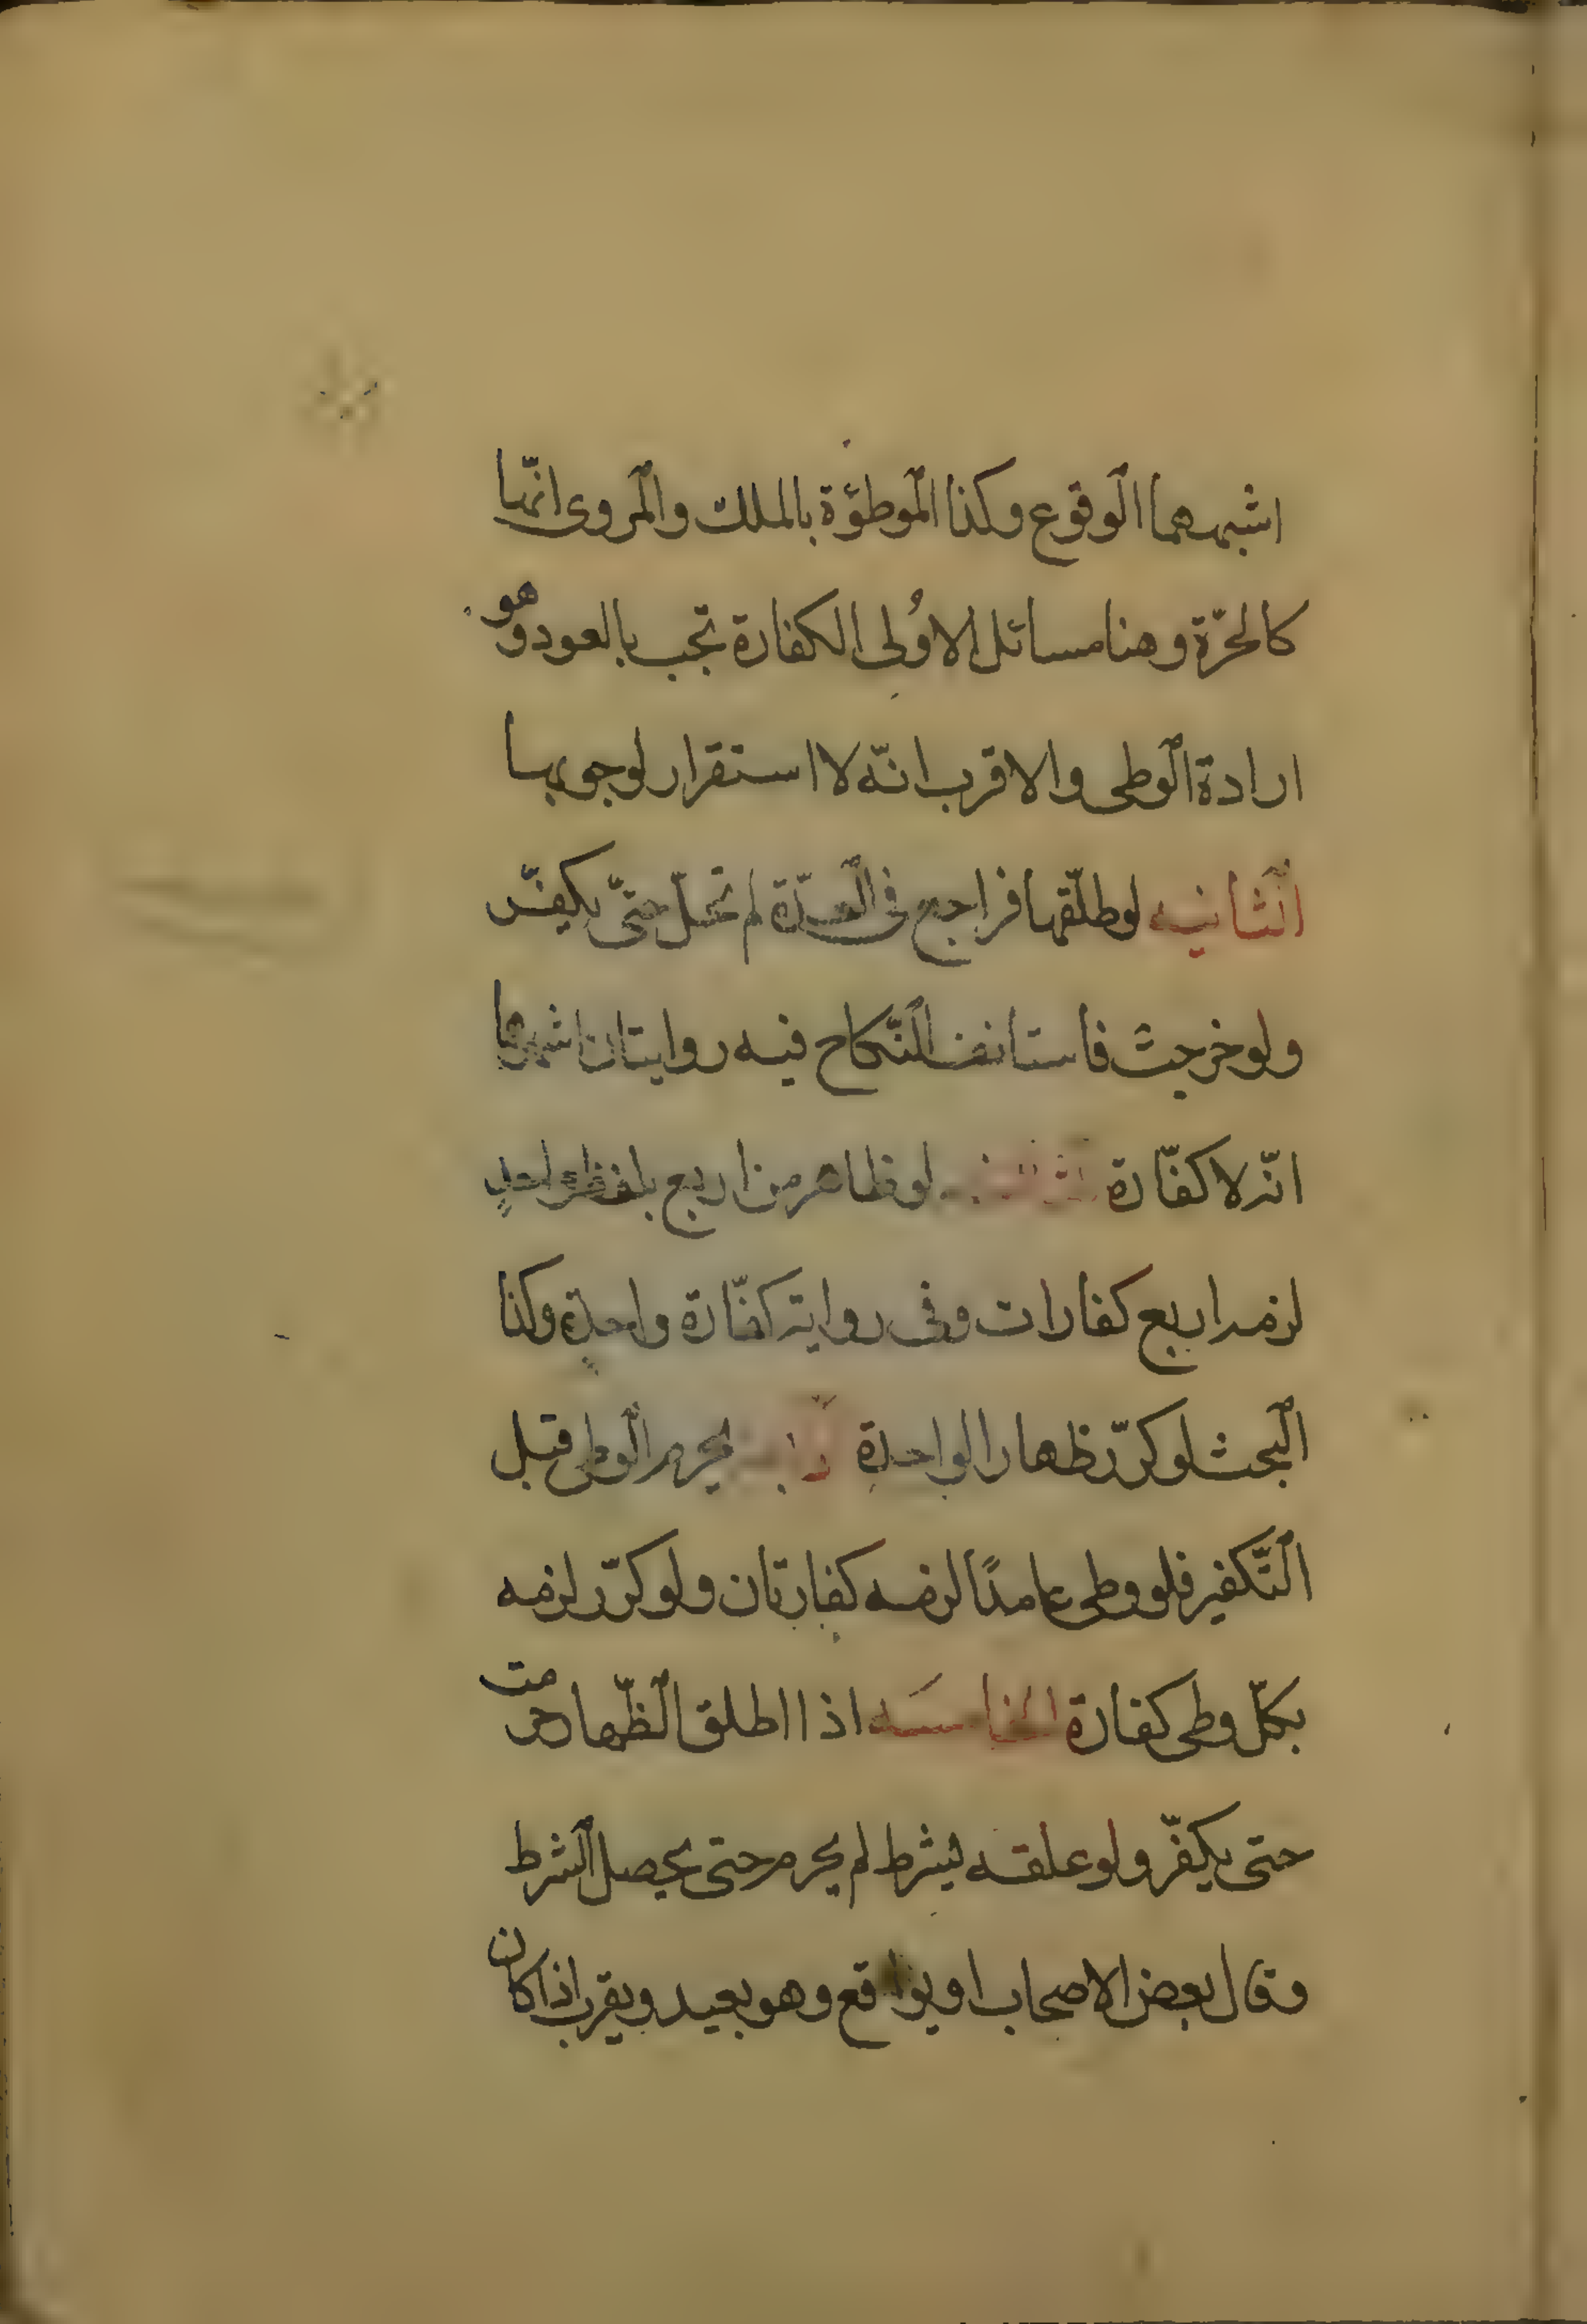 اشبههما الوقوع وكذا الموطؤة بالملك والمروى انّها
كالحرّة وهنا مسائل الاُولى الكفارة تجب بالعود وهو
ارادة الوطى والاقرب انّه لا استقرار لوجوبها
الثانيه لو طلّقها فراجع فى العدّة لم تحلّ حتّى يكفّر
ولو خرجت فاستانف النّكاح فيه روايتان اشهرهما
انّه لا كفّارة الثالثه لو ظاهر من اربع بلفظ واحدٍ
لزمه اربع كفارات وفى رواية كفّارة واحدة وكذا
البحث لو كرّر ظهار الواحدة الرابعة يحرم الوطى قبل
التّكفير فلو وطى عامدًا لزمه كفارتان ولو كرّر لزمه
بكلّ وطى كفارة الخامسَه اذا اطلق الظّهار حرمت
حتى يكفّر ولو علقه بشرط لم يحرم حتى يحصل الشرط
وقال بعض الاصحاب او يواقع وهو بعيد ويقرب اذا كان